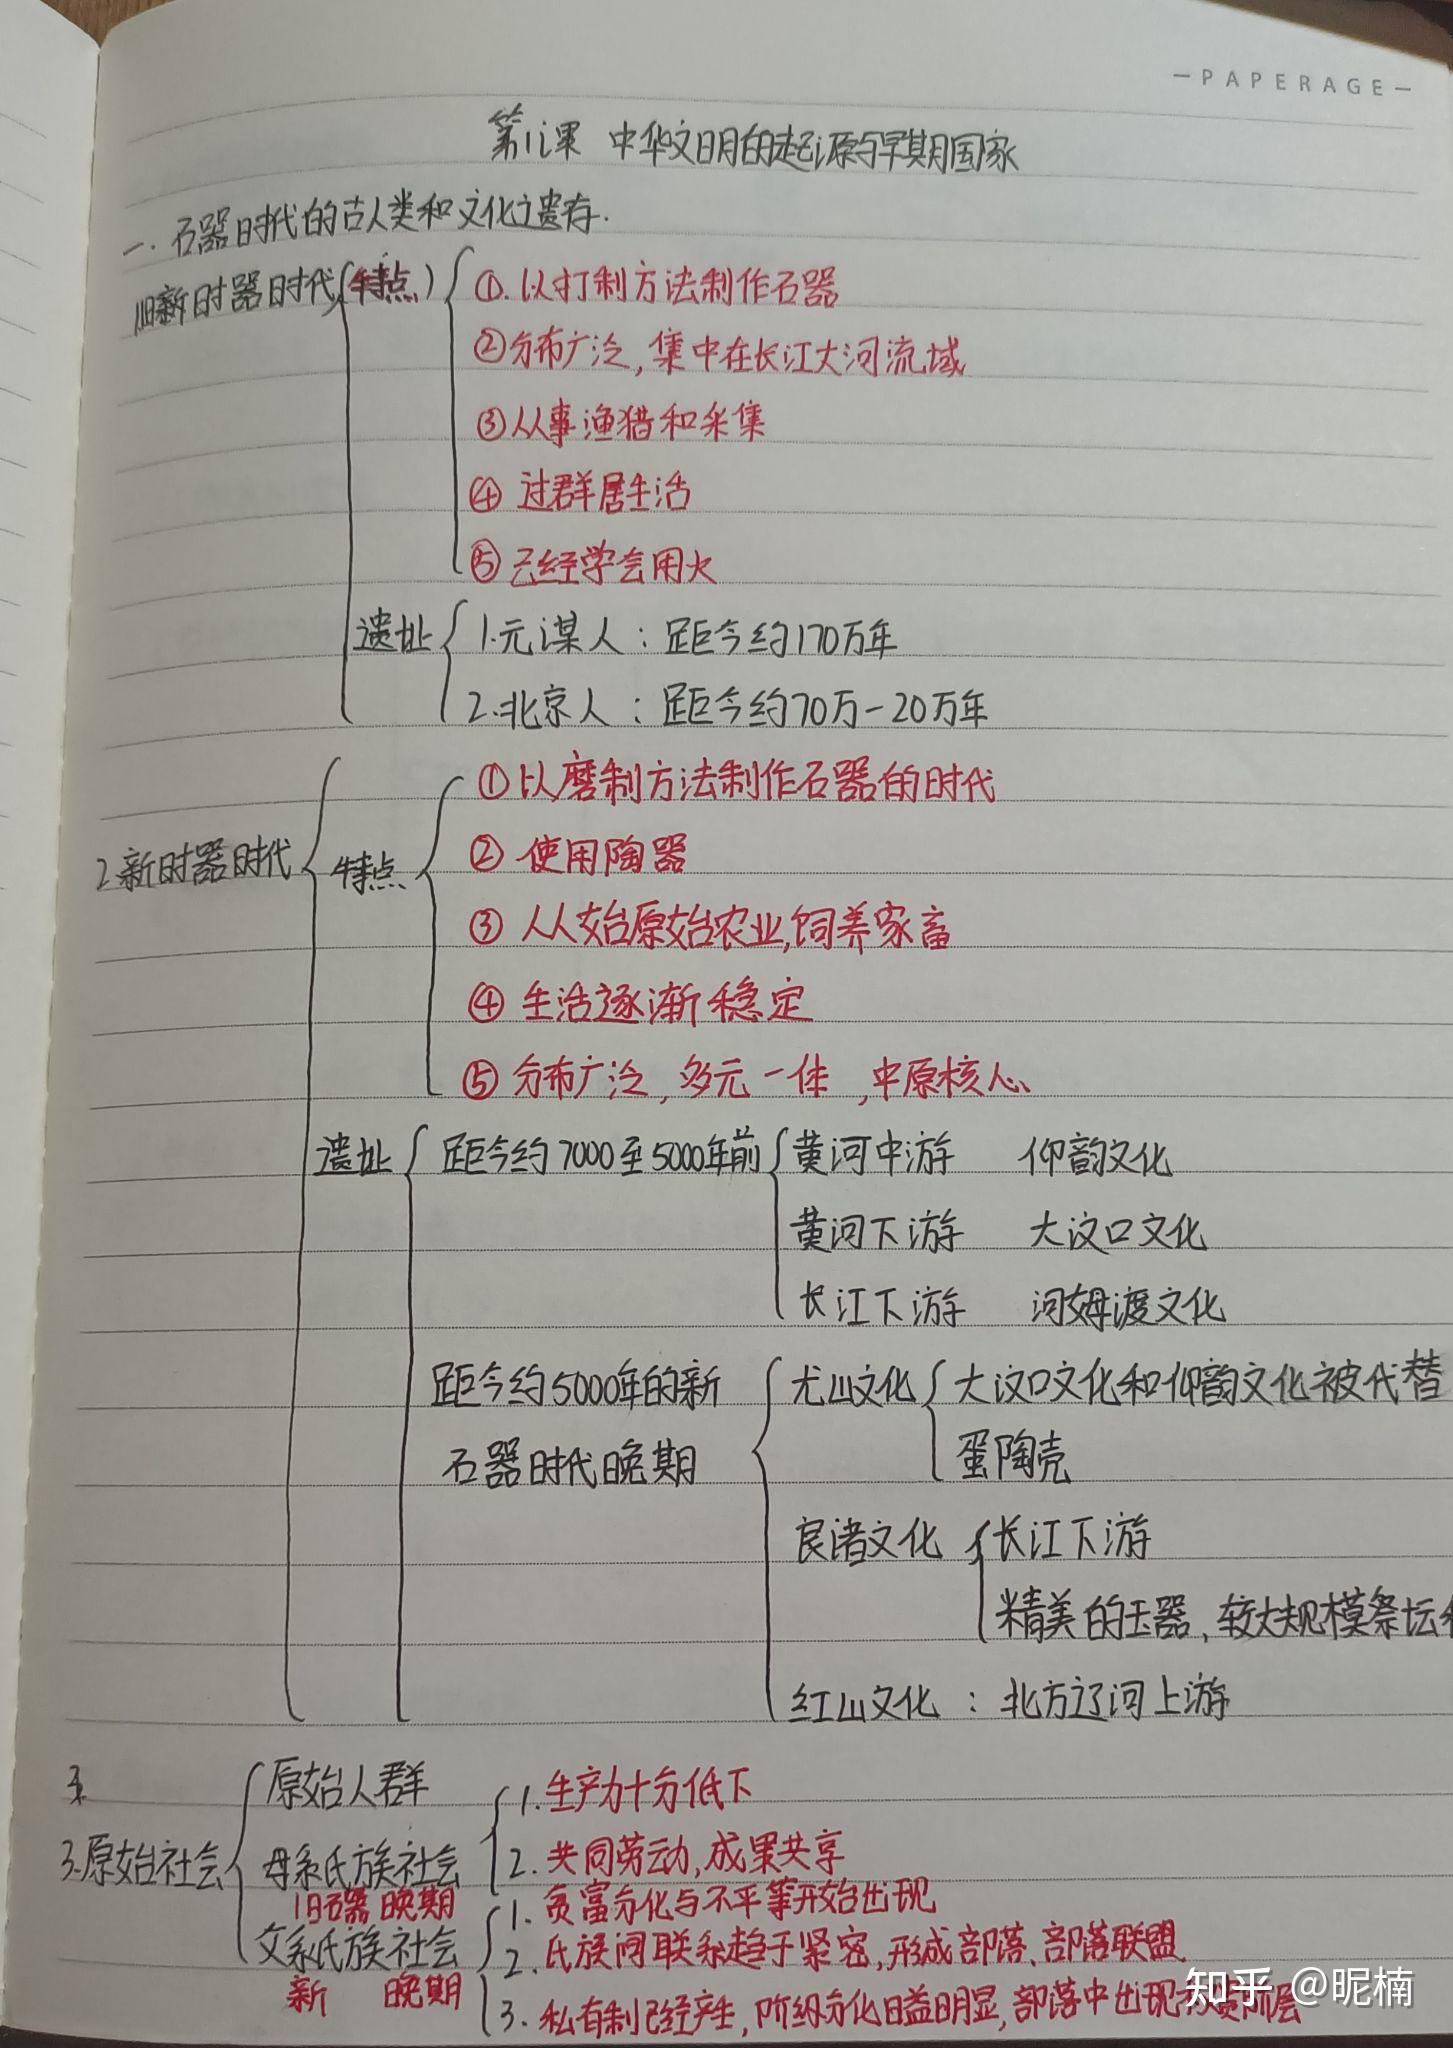 PAPERAGE
第1课 中华文明的起源与早期国家
一. 石器时代的古人类和文化遗存.
旧新时器时代(特点)
①. 以打制方法制作石器
②分布广泛, 集中在长江大河流域
③从事渔猎和采集
④ 过群居生活
⑤已经学会用火
遗址 1.元谋人: 距今约170万年
2.北京人: 距今约70万-20万年
2.新时器时代 特点
①以磨制方法制作石器的时代
② 使用陶器
③ 从始原始农业,饲养家畜
④ 生活逐渐稳定
⑤ 分布广泛, 多元一体, 中原核心
遗址 距今约7000至5000年前 黄河中游 仰韵文化
黄河下游 大汶口文化
长江下游 河姆渡文化
距今约5000年的新石器时代晚期
尤山文化 大汶口文化和仰韵文化被代替
蛋陶壳
良渚文化 长江下游
精美的玉器, 较大规模祭坛
红山文化: 北方辽河上游
3.原始社会
原始人群
母系氏族社会
旧石器晚期
1. 生产力十分低下
2. 共同劳动,成果共享
父系氏族社会
新 晚期
1. 贫富分化与不平等开始出现
2. 氏族间联系趋于紧密, 形成部落、部落联盟
3. 私有制已经产生, 阶级分化日益明显, 部落中出现
知乎 @昵楠